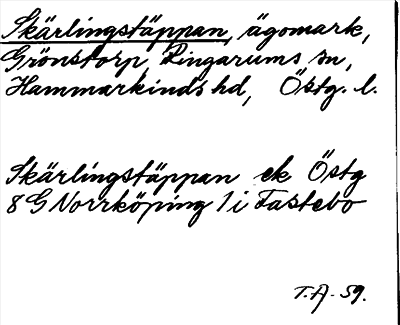 Skärlingstäppan, ägomark,
Grönstorp, Ringarums sn,
Hammarkinds hd, Östg. l.
Skärlingstäppan ek Östg
8 G Norrköping 1 i Fastebo
T.A. 59.